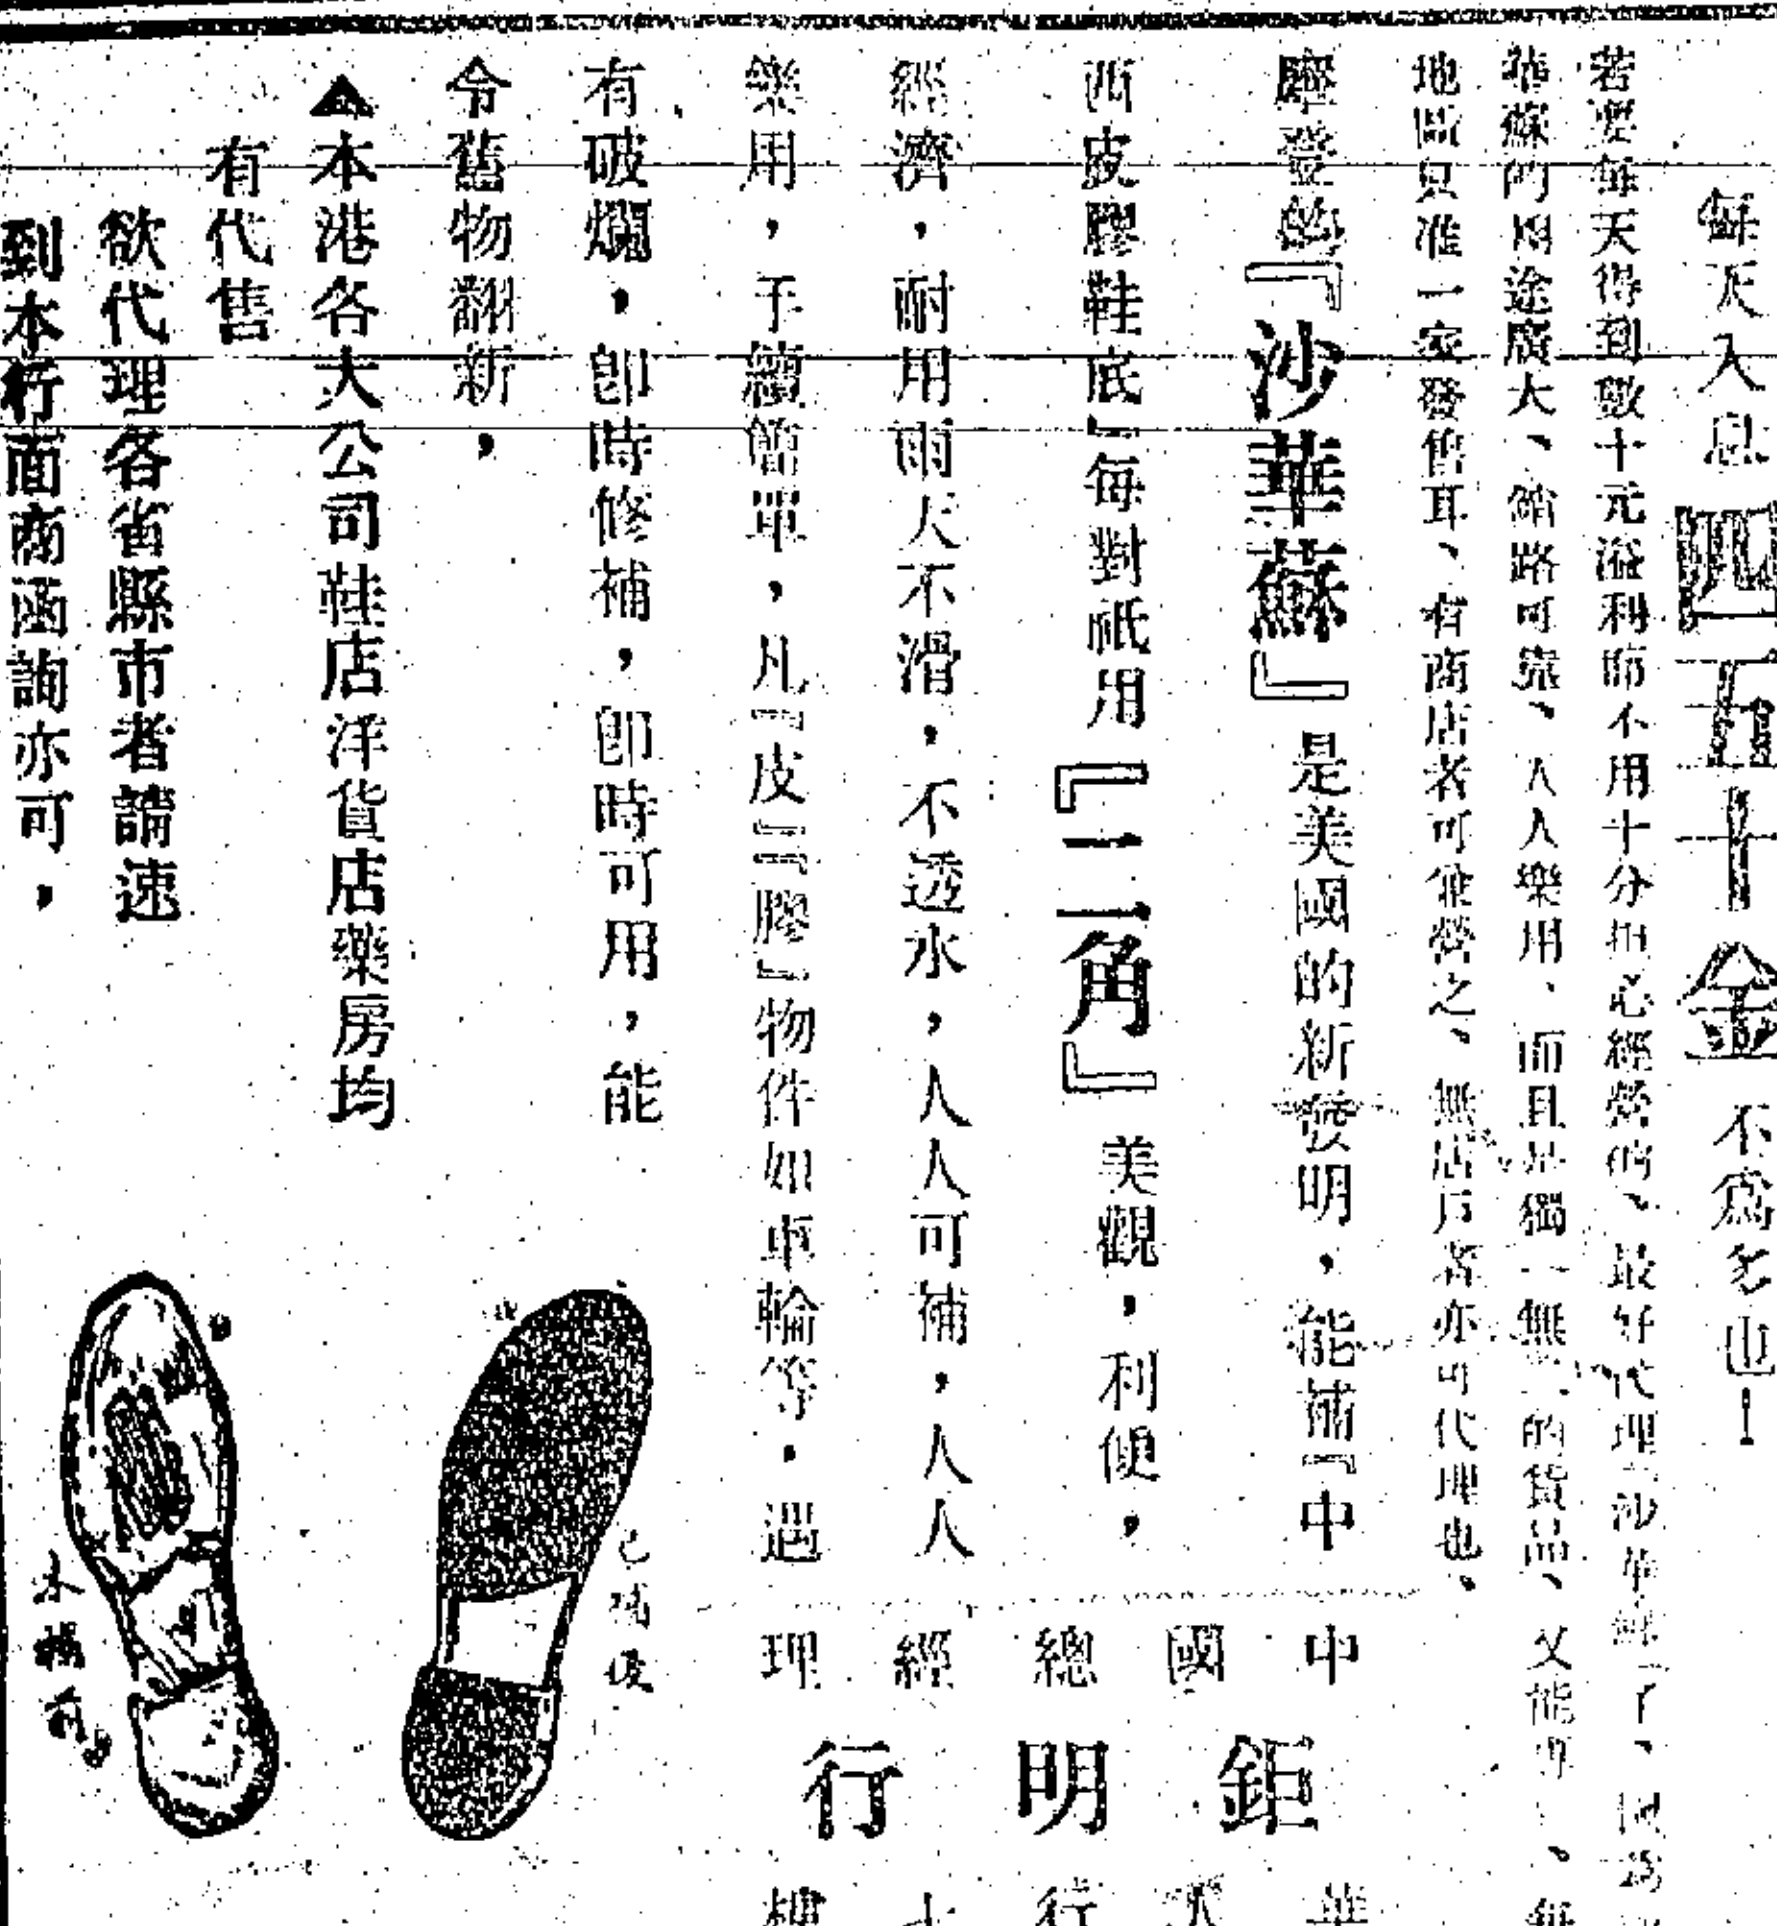 每天入息四五十金不爲多也！
若要每天得到數十元溢利而不用十分担心經營的、最好代理『沙華蘇』了、因爲
華蘇的用途廣大、銷路可靠、人人樂用、而且是獨一無二的貨品、又能専、每
地區只准一家發售耳、有商店者可兼營之、無店戶者亦可代理也、
摩登的『沙華蘇』是美國的新發明，能補『中
西皮膠鞋底』每對祇用『二角』美觀，利便，
經濟，耐用雨天不滑，不透水，人人可補，人人
樂用，手續簡單，凡『皮』『膠』物件如車輪等，遇
有破爛，即時修補，即時可用，能
令舊物翻新，
▲本港各大公司鞋店洋貨店藥房均
有代售
欲代理各省縣市者請速
到本行面商函詢亦可，
已補後
未補前
中國總經理
鉅明行
華人行七樓